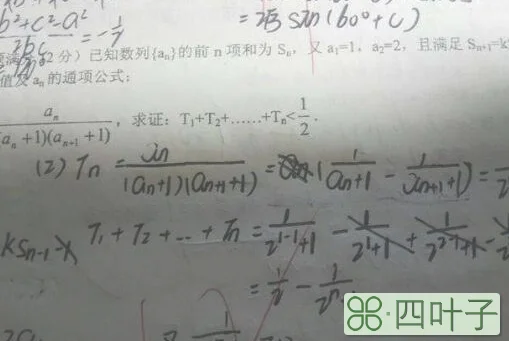 b²+c²-a² / 2bc = -1/7
=2√3 sin(60°+C)
满分 2分）已知数列{aₙ}的前 n 项和为 Sₙ，又 a₁=1，a₂=2，且满足 Sₙ₊₁=k
值及 aₙ 的通项公式；
aₙ / (aₙ+1)(aₙ₊₁+1) ，求证：T₁+T₂+……+Tₙ<1/2.
(2) Tₙ = aₙ / (aₙ+1)(aₙ₊₁+1) = (1/(aₙ+1) - 1/(aₙ₊₁+1)) =
kSₙ₋₁ T₁+T₂+…+Tₙ = 1/(2¹⁻¹+1) - 1/(2¹+1) + 1/(2²⁻¹+1) -
= 1/2 - 1/2ⁿ
四叶子